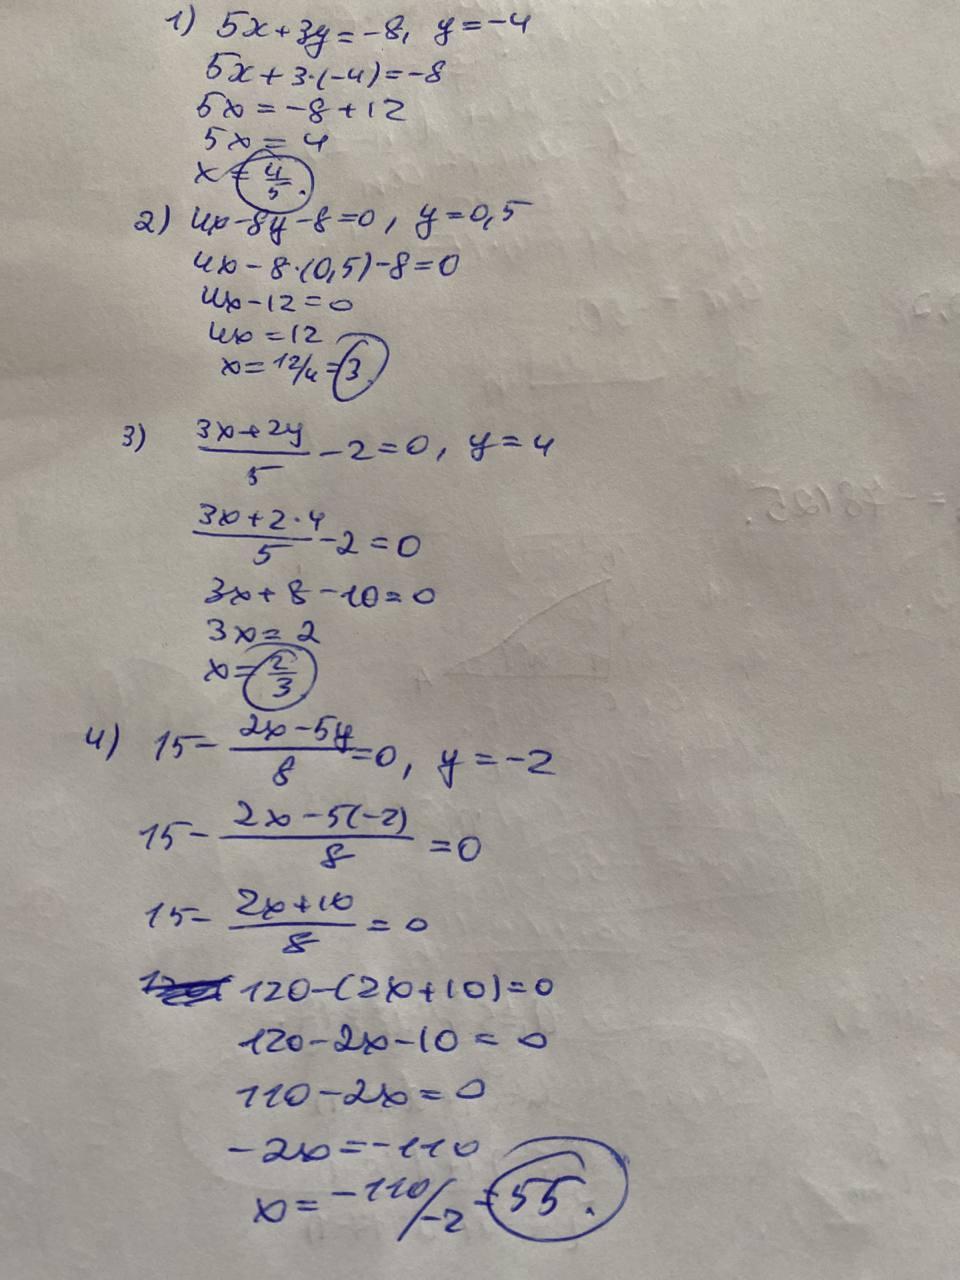 1) 5x+3y=-8, y=-4
5x+3·(-4)=-8
5x=-8+12
5x=4
x=4/5.
2) 4x-8y-8=0, y=0,5
4x-8·(0,5)-8=0
4x-12=0
4x=12
x=12/4=3
3) (3x+2y)/5 -2=0, y=4
(3x+2·4)/5 -2=0
3x+8-10=0
3x=2
x=2/3
4) 15-(2x-5y)/8=0, y=-2
15-(2x-5(-2))/8=0
15-(2x+10)/8=0
120-(2x+10)=0
120-2x-10=0
110-2x=0
-2x=-110
x=-110/-2=55.